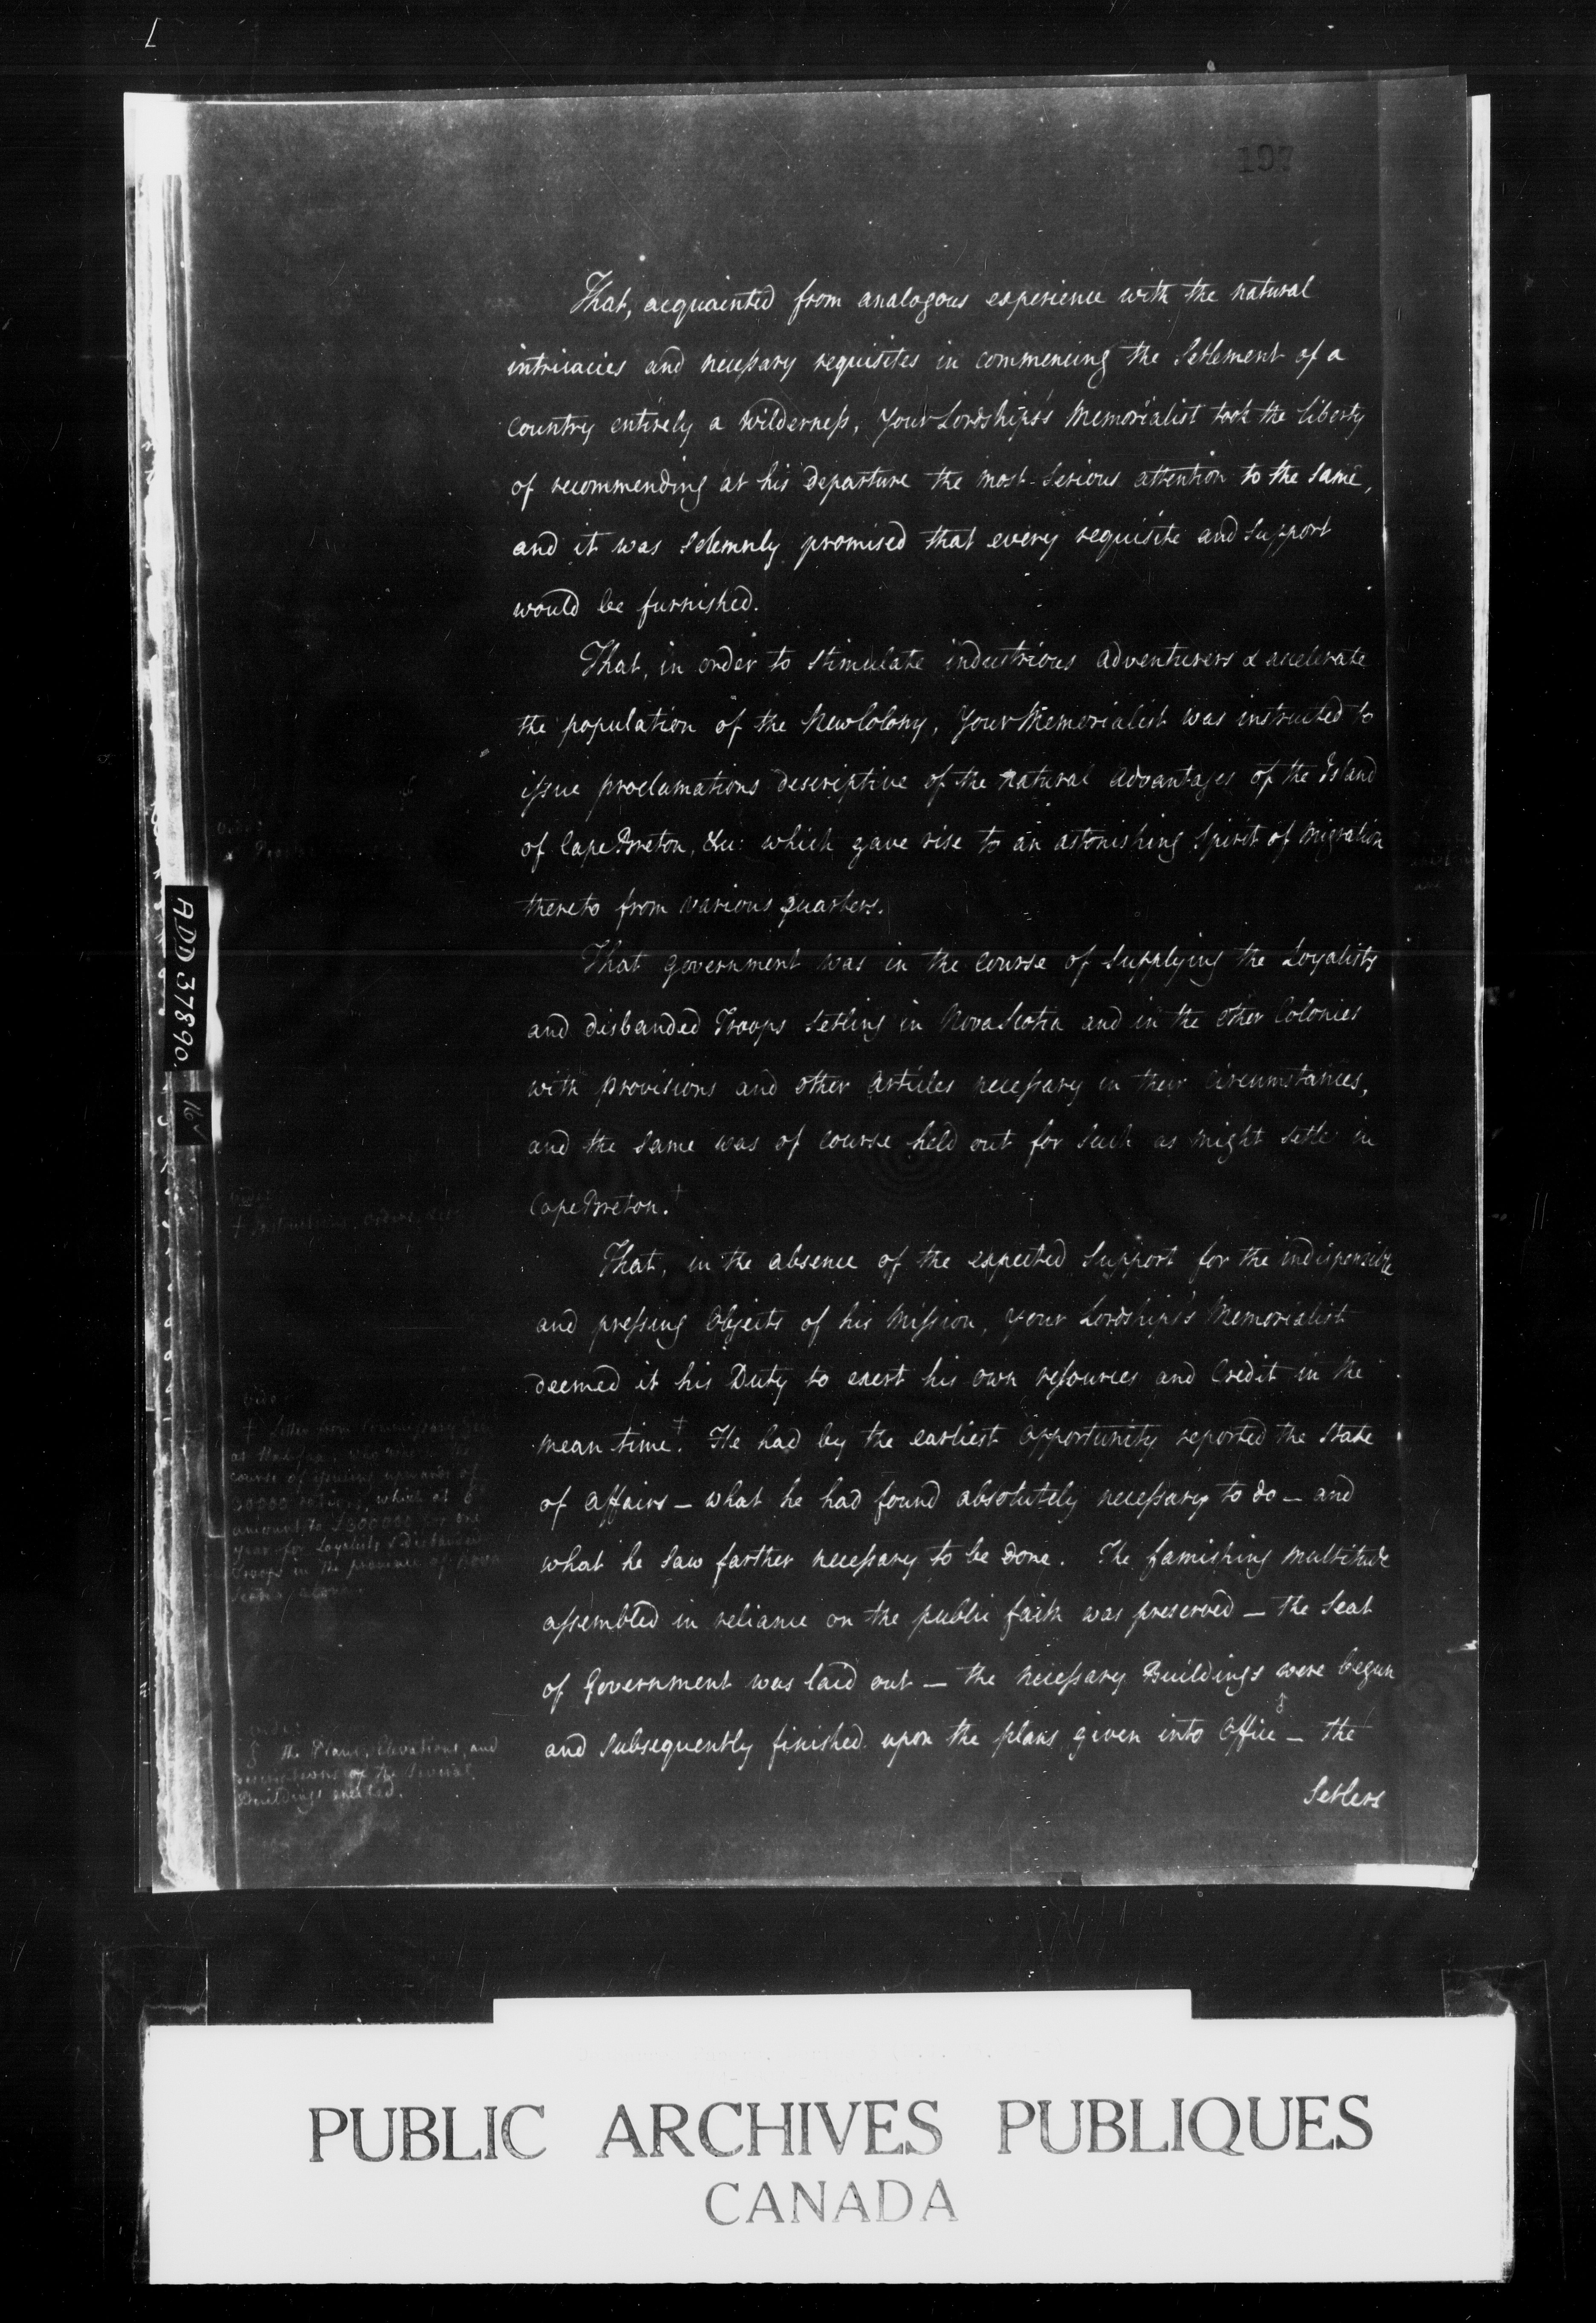 197
That, acquainted from analogous experience with the natural
intricacies and necessary requisites in commencing the Setlement of a
country entirely a wilderness, Your Lordships's Memorialist took the liberty
of recommending at his departure the most serious attention to the same,
and it was solemnly promised that every requisite and support
would be furnished.
That, in order to stimulate industrious adventurers & accelerate
the population of the New Colony, Your Memorialist was instructed to
issue proclamations descriptive of the natural advantages of the Island
of Cape Breton, &c: which gave rise to an astonishing spirit of migration
thereto from various quarters.
That government was in the course of supplying the Loyalists
and disbanded Troops setling in Nova Scotia and in the other Colonies
with provisions and other articles necessary in their circumstances,
and the same was of course held out for such as might setle in
Cape Breton.†
vide:
† Instructions, orders,
That, in the absence of the expected support for the indispensible
and pressing objects of his mission, your Lordships's Memorialist
deemed it his Duty to exert his own resources and Credit in the
mean time.† He had by the earliest opportunity reported the state
of affairs — what he had found absolutely necessary to do — and
what he saw farther necessary to be done. The famishing multitude
assembled in reliance on the public faith was preserved — the seat
of Government was laid out — the necessary Buildings were begun
and subsequently finished upon the plans given into Office§ — the
Setlers
vide
† Letter from Commissary Genl
at Halifax, who was in the
course of issuing upwards of
rations, which at 6d
amount to £300000 for one
year for Loyalists & disbanded
Troops in the province of Nova
Scotia alone.
vide:
§ the Plans, Elevations, and
of the several
Buildings erected.
ADD 37890
16
PUBLIC ARCHIVES PUBLIQUES
CANADA